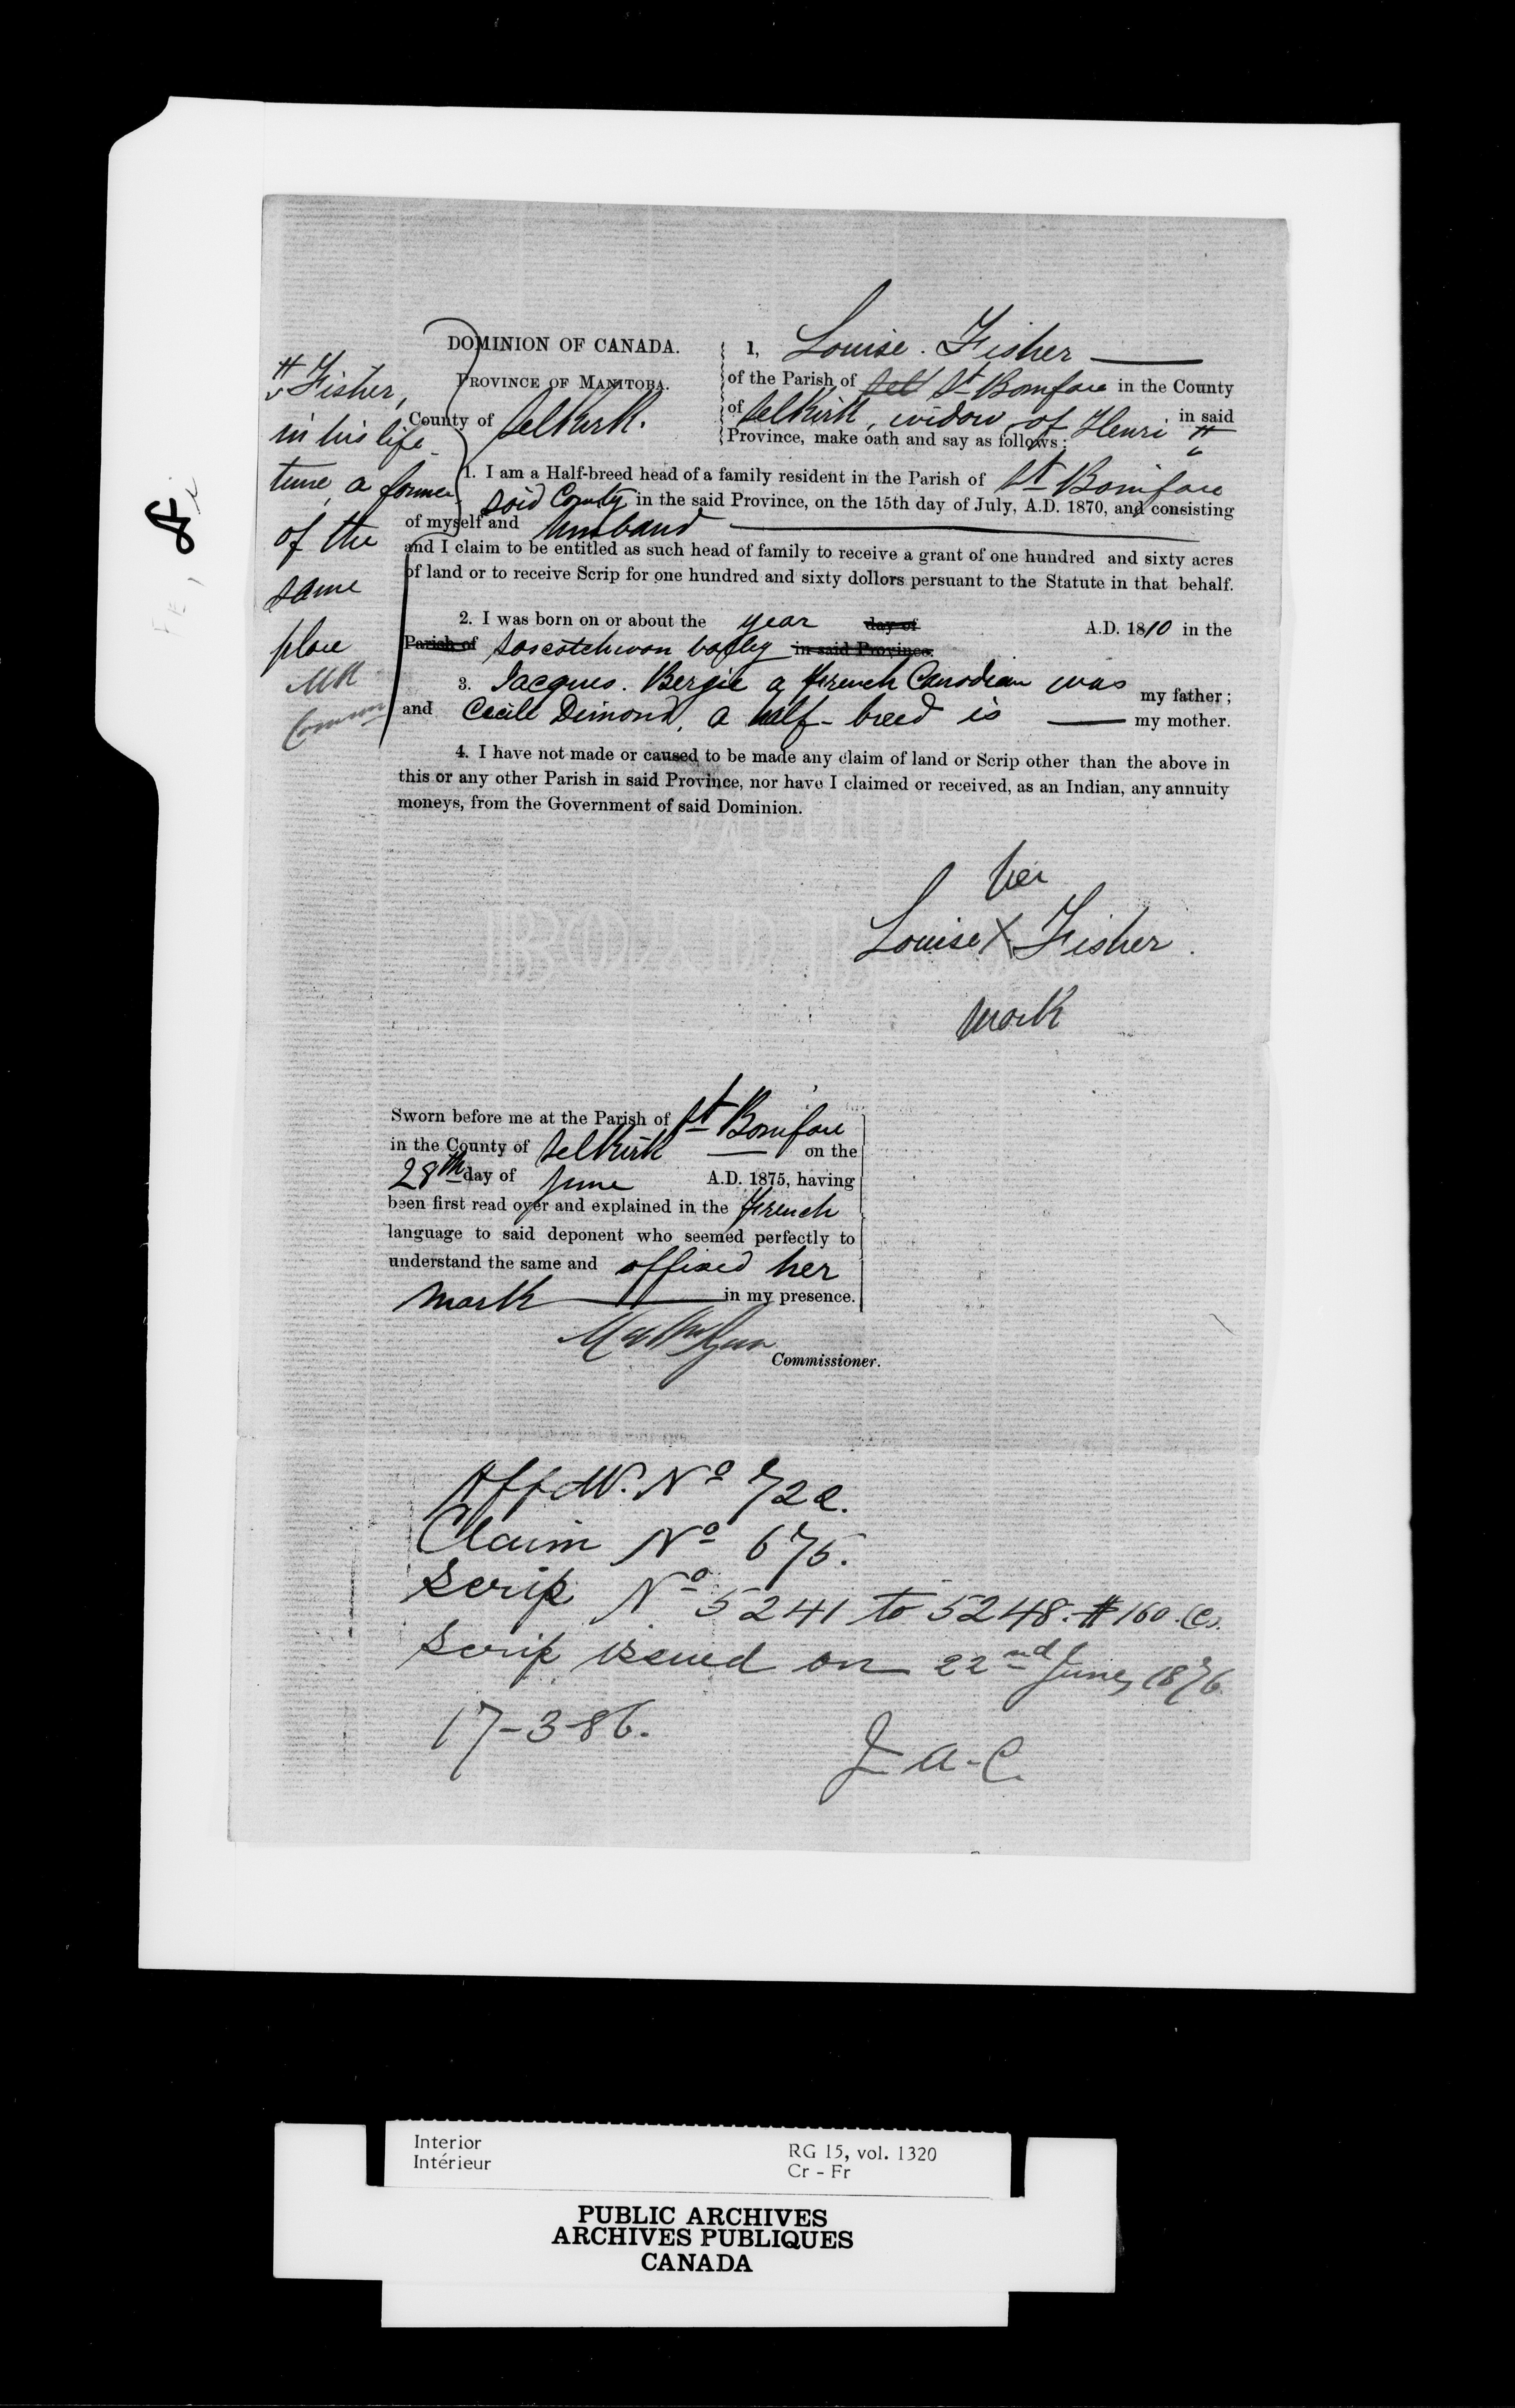 DOMINION OF CANADA.
PROVINCE OF MANITOBA.
County of Selkirk.
I, Louise Fisher
of the Parish of Sel St Boniface in the County
of Selkirk, widow of Henri # in said
Province, make oath and say as follows:
# Fisher,
in his life
time, a farmer
of the
same
place
1. I am a Half-breed head of a family resident in the Parish of St Boniface
said County in the said Province, on the 15th day of July, A.D. 1870, and consisting
of myself and husband
and I claim to be entitled as such head of family to receive a grant of one hundred and sixty acres
of land or to receive Scrip for one hundred and sixty dollors persuant to the Statute in that behalf.
2. I was born on or about the year day of A.D. 1810 in the
Parish of Soscotchwon valley in said Province.
3. Jacques Bergie a French Canadian was my father;
and Cecile Dimond, a half-breed is my mother.
4. I have not made or caused to be made any claim of land or Scrip other than the above in
this or any other Parish in said Province, nor have I claimed or received, as an Indian, any annuity
moneys, from the Government of said Dominion.
her
Louise X Fisher.
mark
Sworn before me at the Parish of St Boniface
in the County of Selkirk on the
28th day of June A.D. 1875, having
been first read over and explained in the French
language to said deponent who seemed perfectly to
understand the same and affixed her
mark in my presence.
Commissioner.
Affdt. No 72a.
Claim No 675.
Scrip No 5241 to 5248. $160.
Scrip issued on 22nd June, 1876
17-3-86.
J. A. C.
Interior
Intérieur
RG 15, vol. 1320
Cr - Fr
PUBLIC ARCHIVES
ARCHIVES PUBLIQUES
CANADA